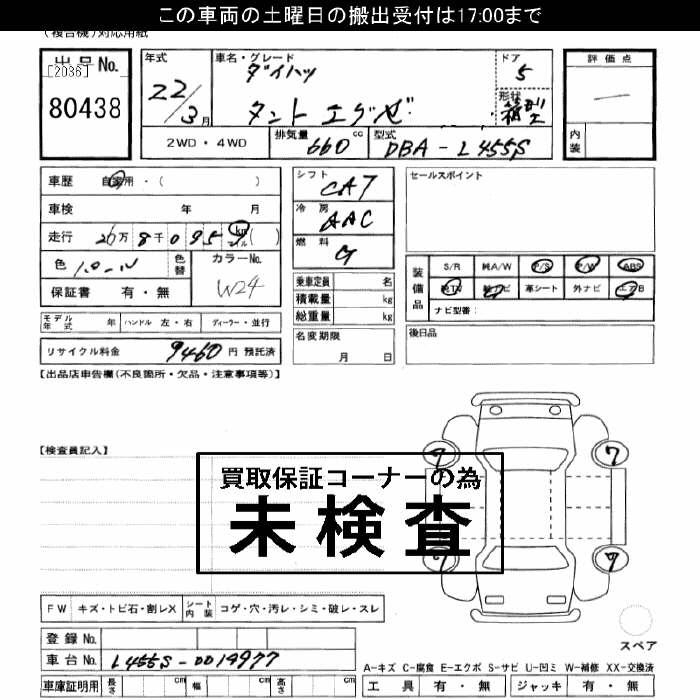 この車両の土曜日の搬出受付は17:00まで
(複合機)対応用紙
出品No.
[2036]
80438
年式
22/3月
車名・グレード
ダイハツ
タント エグゼ
ドア
5
形状
箱型
評価点
—
内装
2WD・4WD
排気量 660 cc
型式 DBA-L455S
車歴 自家用・( )
車検 年 月
走行 26万8千0959 km マイル ( )
色 パール
色替
カラーNo.
W24
保証書 有・無
シフト
CAT
冷房
AAC
燃料
G
セールスポイント
乗車定員 名
積載量 kg
総重量 kg
装備品
S/R 純A/W P/S P/W ABS
純TV 純ナビ 革シート 外ナビ エアB
ナビ型番:
モデル年式 年 ハンドル 左・右 ディーラー・並行
名変期限
月 日
後日品
リサイクル料金 9460 円 預託済
【出品店車告欄(不良箇所・欠品・注意事項等)】
【検査員記入】
買取保証コーナーの為
未検査
7
7
7
7
FW キズ・トビ石・割レX シート内装 コゲ・穴・汚レ・シミ・破レ・スレ
登録No.
車台No. L455S-0014977
スペア
A-キズ C-腐食 E-エクボ S-サビ U-凹ミ W-補修 XX-交換済
車庫証明用 長さ cm 幅 cm 高さ cm
工具 有・無 ジャッキ 有・無